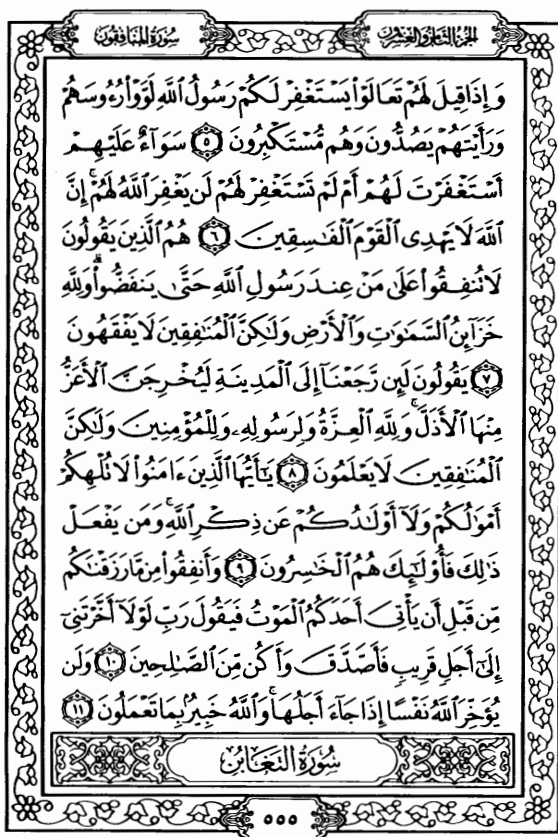 سُورَةُ المُنَافِقُون
الجُزْءُ الثَّامِنُ وَالعِشْرُونَ
وَإِذَا قِيلَ لَهُمْ تَعَالَوْا۟ يَسْتَغْفِرْ لَكُمْ رَسُولُ ٱللَّهِ لَوَّوْا۟ رُءُوسَهُمْ
وَرَأَيْتَهُمْ يَصُدُّونَ وَهُم مُّسْتَكْبِرُونَ ٥ سَوَآءٌ عَلَيْهِمْ
أَسْتَغْفَرْتَ لَهُمْ أَمْ لَمْ تَسْتَغْفِرْ لَهُمْ لَن يَغْفِرَ ٱللَّهُ لَهُمْ ۚ إِنَّ
ٱللَّهَ لَا يَهْدِى ٱلْقَوْمَ ٱلْفَـٰسِقِينَ ٦ هُمُ ٱلَّذِينَ يَقُولُونَ
لَا تُنفِقُوا۟ عَلَىٰ مَنْ عِندَ رَسُولِ ٱللَّهِ حَتَّىٰ يَنفَضُّوا۟ ۗ وَلِلَّهِ
خَزَآئِنُ ٱلسَّمَـٰوَٰتِ وَٱلْأَرْضِ وَلَـٰكِنَّ ٱلْمُنَـٰفِقِينَ لَا يَفْقَهُونَ
٧ يَقُولُونَ لَئِن رَّجَعْنَآ إِلَى ٱلْمَدِينَةِ لَيُخْرِجَنَّ ٱلْأَعَزُّ
مِنْهَا ٱلْأَذَلَّ ۚ وَلِلَّهِ ٱلْعِزَّةُ وَلِرَسُولِهِۦ وَلِلْمُؤْمِنِينَ وَلَـٰكِنَّ
ٱلْمُنَـٰفِقِينَ لَا يَعْلَمُونَ ٨ يَـٰٓأَيُّهَا ٱلَّذِينَ ءَامَنُوا۟ لَا تُلْهِكُمْ
أَمْوَٰلُكُمْ وَلَآ أَوْلَـٰدُكُمْ عَن ذِكْرِ ٱللَّهِ ۚ وَمَن يَفْعَلْ
ذَٰلِكَ فَأُو۟لَـٰٓئِكَ هُمُ ٱلْخَـٰسِرُونَ ٩ وَأَنفِقُوا۟ مِن مَّا رَزَقْنَـٰكُم
مِّن قَبْلِ أَن يَأْتِىَ أَحَدَكُمُ ٱلْمَوْتُ فَيَقُولَ رَبِّ لَوْلَآ أَخَّرْتَنِىٓ
إِلَىٰٓ أَجَلٍ قَرِيبٍ فَأَصَّدَّقَ وَأَكُن مِّنَ ٱلصَّـٰلِحِينَ ١٠ وَلَن
يُؤَخِّرَ ٱللَّهُ نَفْسًا إِذَا جَآءَ أَجَلُهَا ۚ وَٱللَّهُ خَبِيرٌۢ بِمَا تَعْمَلُونَ ١١
سُورَةُ التَّغَابُنِ
٥٥٥